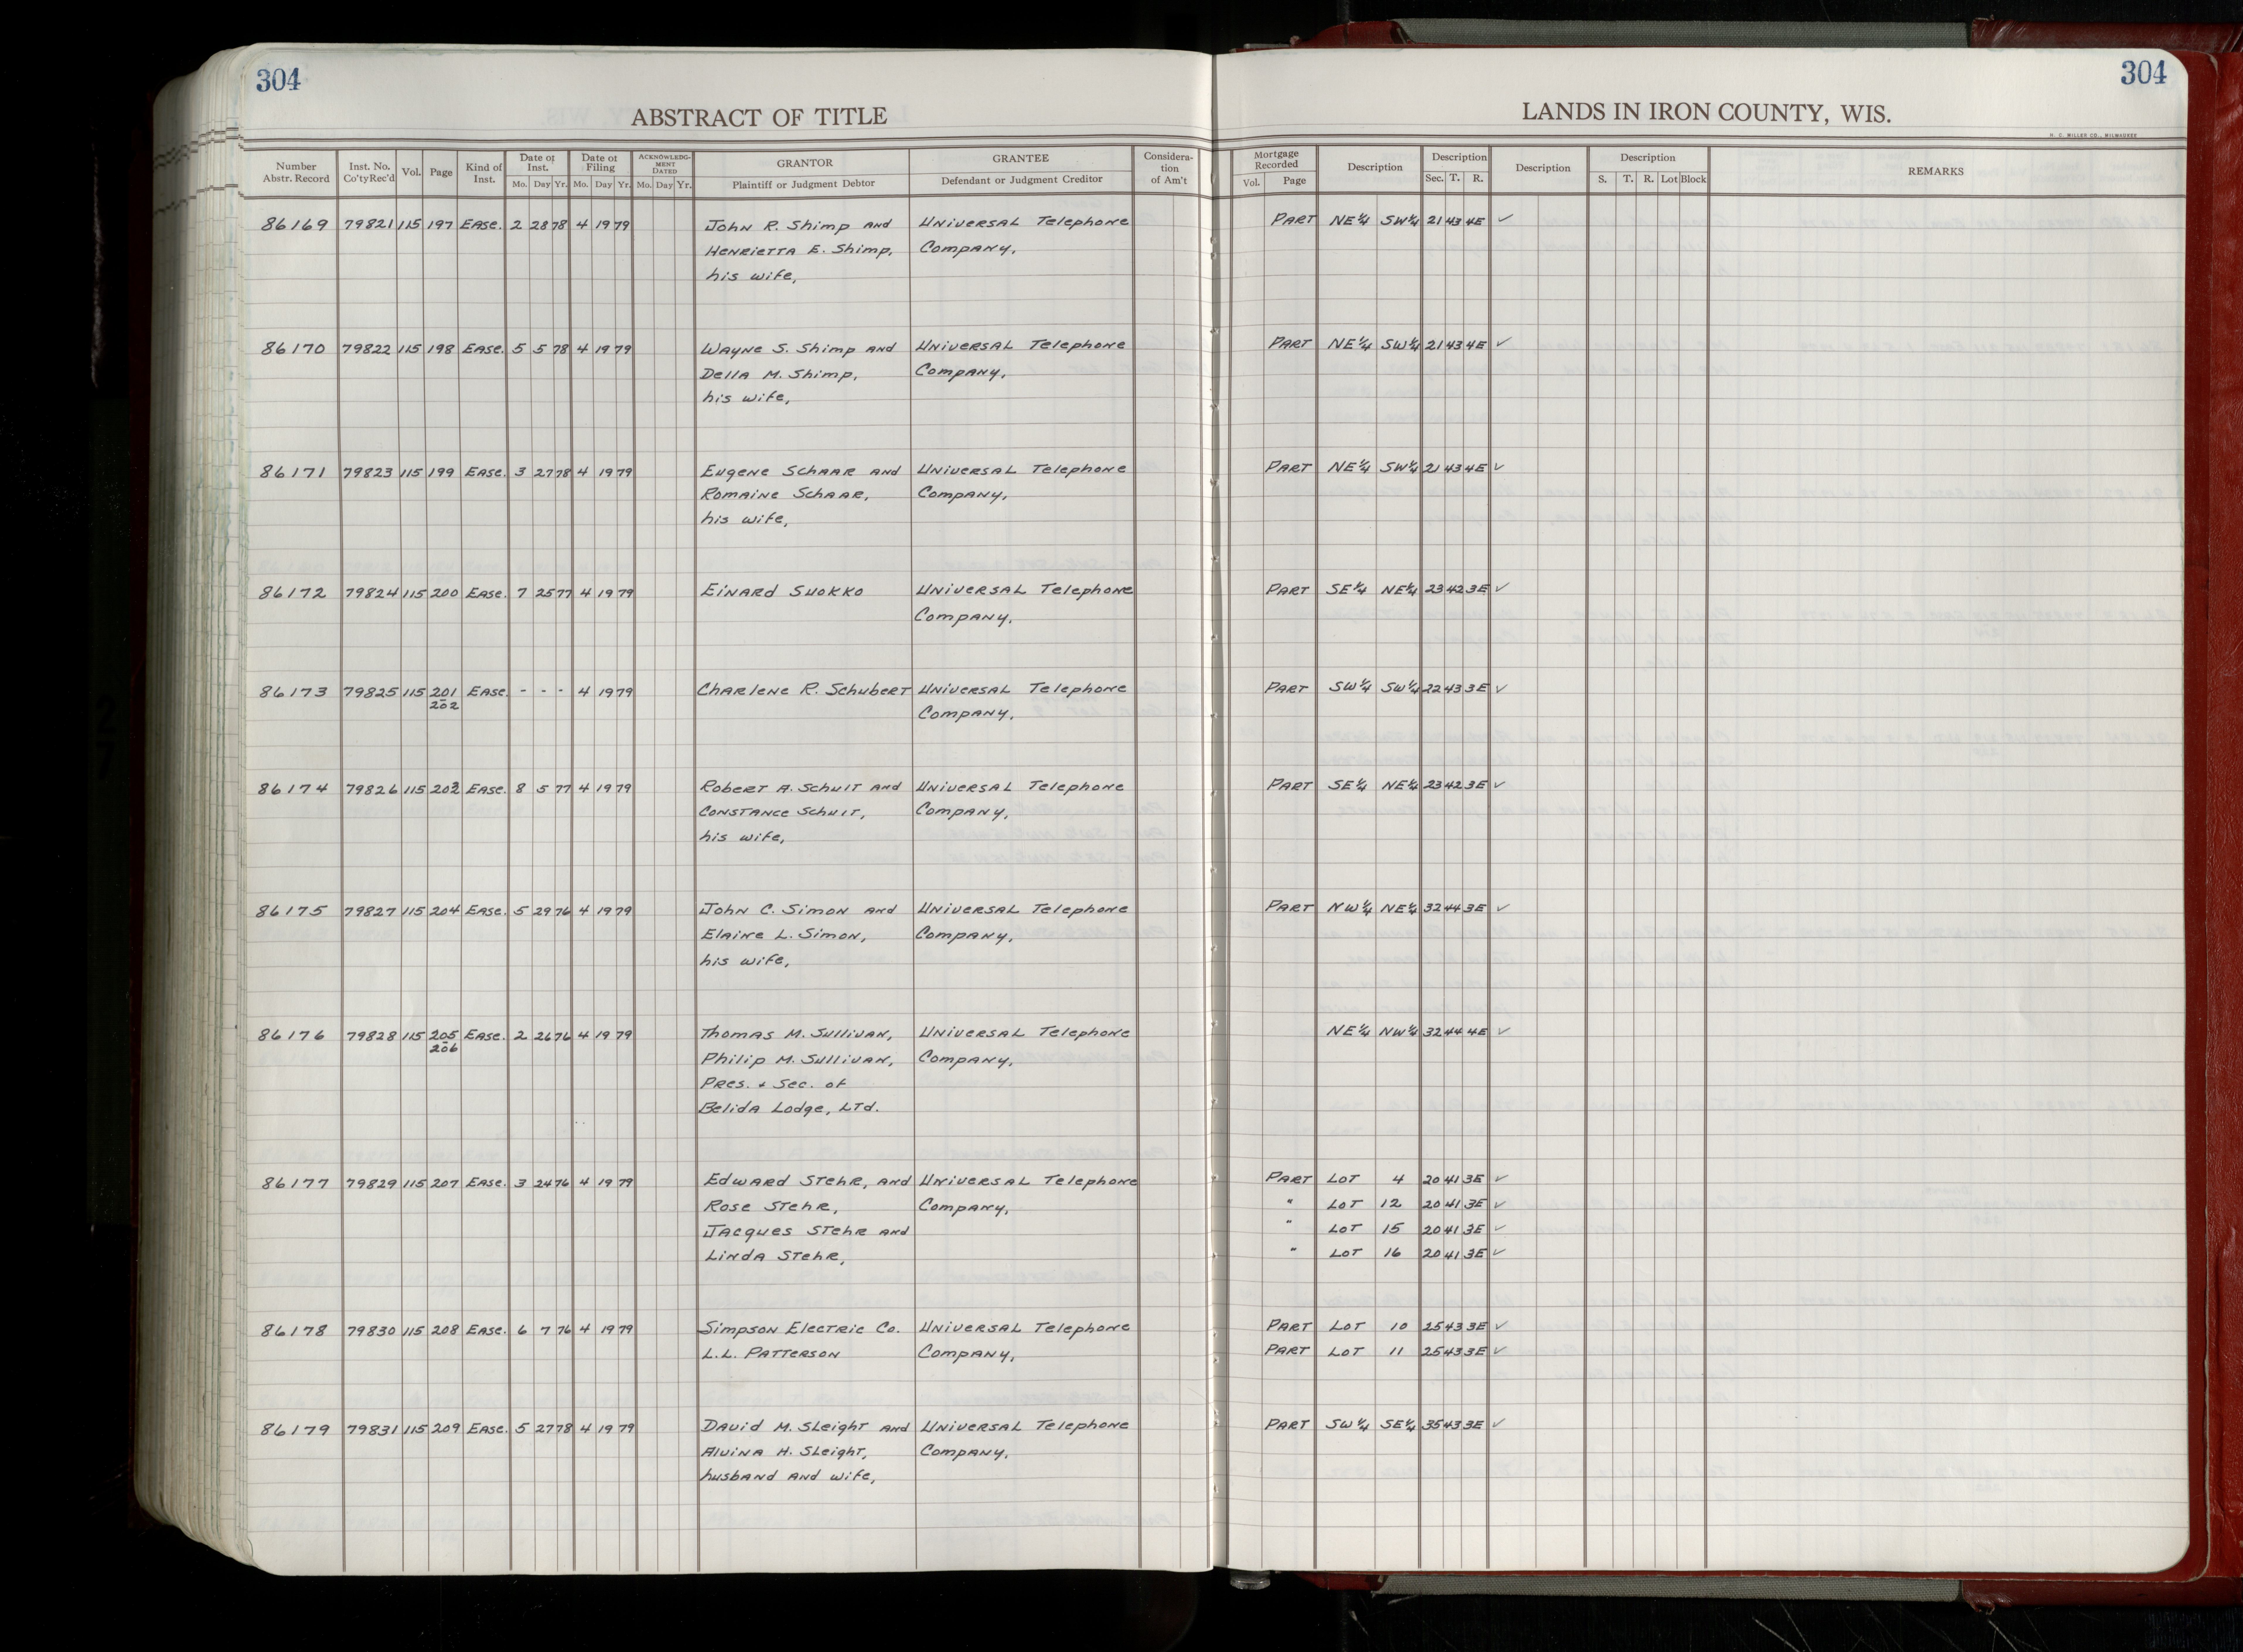 304
304
ABSTRACT OF TITLE
LANDS IN IRON COUNTY, WIS.
H. C. MILLER CO., MILWAUKEE
Number Abstr. Record | Inst. No. Co'ty Rec'd | Vol. | Page | Kind of Inst. | Date of Inst. Mo. Day Yr. | Date of Filing Mo. Day Yr. | ACKNOWLEDGMENT DATED Mo. Day Yr. | GRANTOR Plaintiff or Judgment Debtor | GRANTEE Defendant or Judgment Creditor | Consideration of Am't | Mortgage Recorded Vol. Page | Description | Description Sec. T. R. | Description | Description S. T. R. Lot Block | REMARKS
86169 79821 115 197 Ease. 2 28 78 4 19 79 John R. Shimp and Universal Telephone PART NE¼ SW¼ 21 43 4E ✓
Henrietta E. Shimp, Company,
his wife,
86170 79822 115 198 Ease. 5 5 78 4 19 79 Wayne S. Shimp and Universal Telephone PART NE¼ SW¼ 21 43 4E ✓
Della M. Shimp, Company,
his wife,
86171 79823 115 199 Ease. 3 27 78 4 19 79 Eugene Schaar and Universal Telephone PART NE¼ SW¼ 21 43 4E ✓
Romaine Schaar, Company,
his wife,
86172 79824 115 200 Ease. 7 25 77 4 19 79 Einard Suokko Universal Telephone PART SE¼ NE¼ 23 42 3E ✓
Company,
86173 79825 115 201 Ease. - - - 4 19 79 Charlene R. Schubert Universal Telephone PART SW¼ SW¼ 22 43 3E ✓
202 Company,
86174 79826 115 203 Ease. 8 5 77 4 19 79 Robert A. Schuit and Universal Telephone PART SE¼ NE¼ 23 42 3E ✓
Constance Schuit, Company,
his wife,
86175 79827 115 204 Ease. 5 29 76 4 19 79 John C. Simon and Universal Telephone PART NW¼ NE¼ 32 44 3E ✓
Elaine L. Simon, Company,
his wife,
86176 79828 115 205 Ease. 2 26 76 4 19 79 Thomas M. Sullivan, Universal Telephone NE¼ NW¼ 32 44 4E ✓
206 Philip M. Sullivan, Company,
Pres. & Sec. of
Belida Lodge, Ltd.
86177 79829 115 207 Ease. 3 24 76 4 19 79 Edward Stehr, and Universal Telephone PART LOT 4 20 41 3E ✓
Rose Stehr, Company, " LOT 12 20 41 3E ✓
Jacques Stehr and " LOT 15 20 41 3E ✓
Linda Stehr, " LOT 16 20 41 3E ✓
86178 79830 115 208 Ease. 6 7 76 4 19 79 Simpson Electric Co. Universal Telephone PART LOT 10 25 43 3E ✓
L.L. Patterson Company, PART LOT 11 25 43 3E ✓
86179 79831 115 209 Ease. 5 27 78 4 19 79 David M. Sleight and Universal Telephone PART SW¼ SE¼ 35 43 3E ✓
Alvina H. Sleight, Company,
husband and wife,